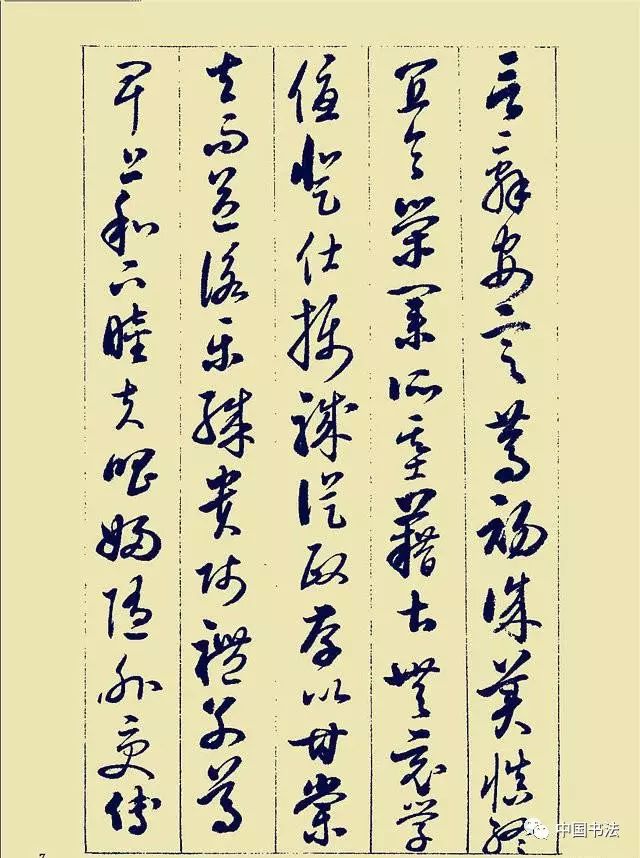 言辭安定篤初誠美慎終
宜令榮業所基籍甚無竟學
優登仕攝職從政存以甘棠
去而益詠樂殊貴賤禮別尊
卑上和下睦夫唱婦隨外受傅
中国书法